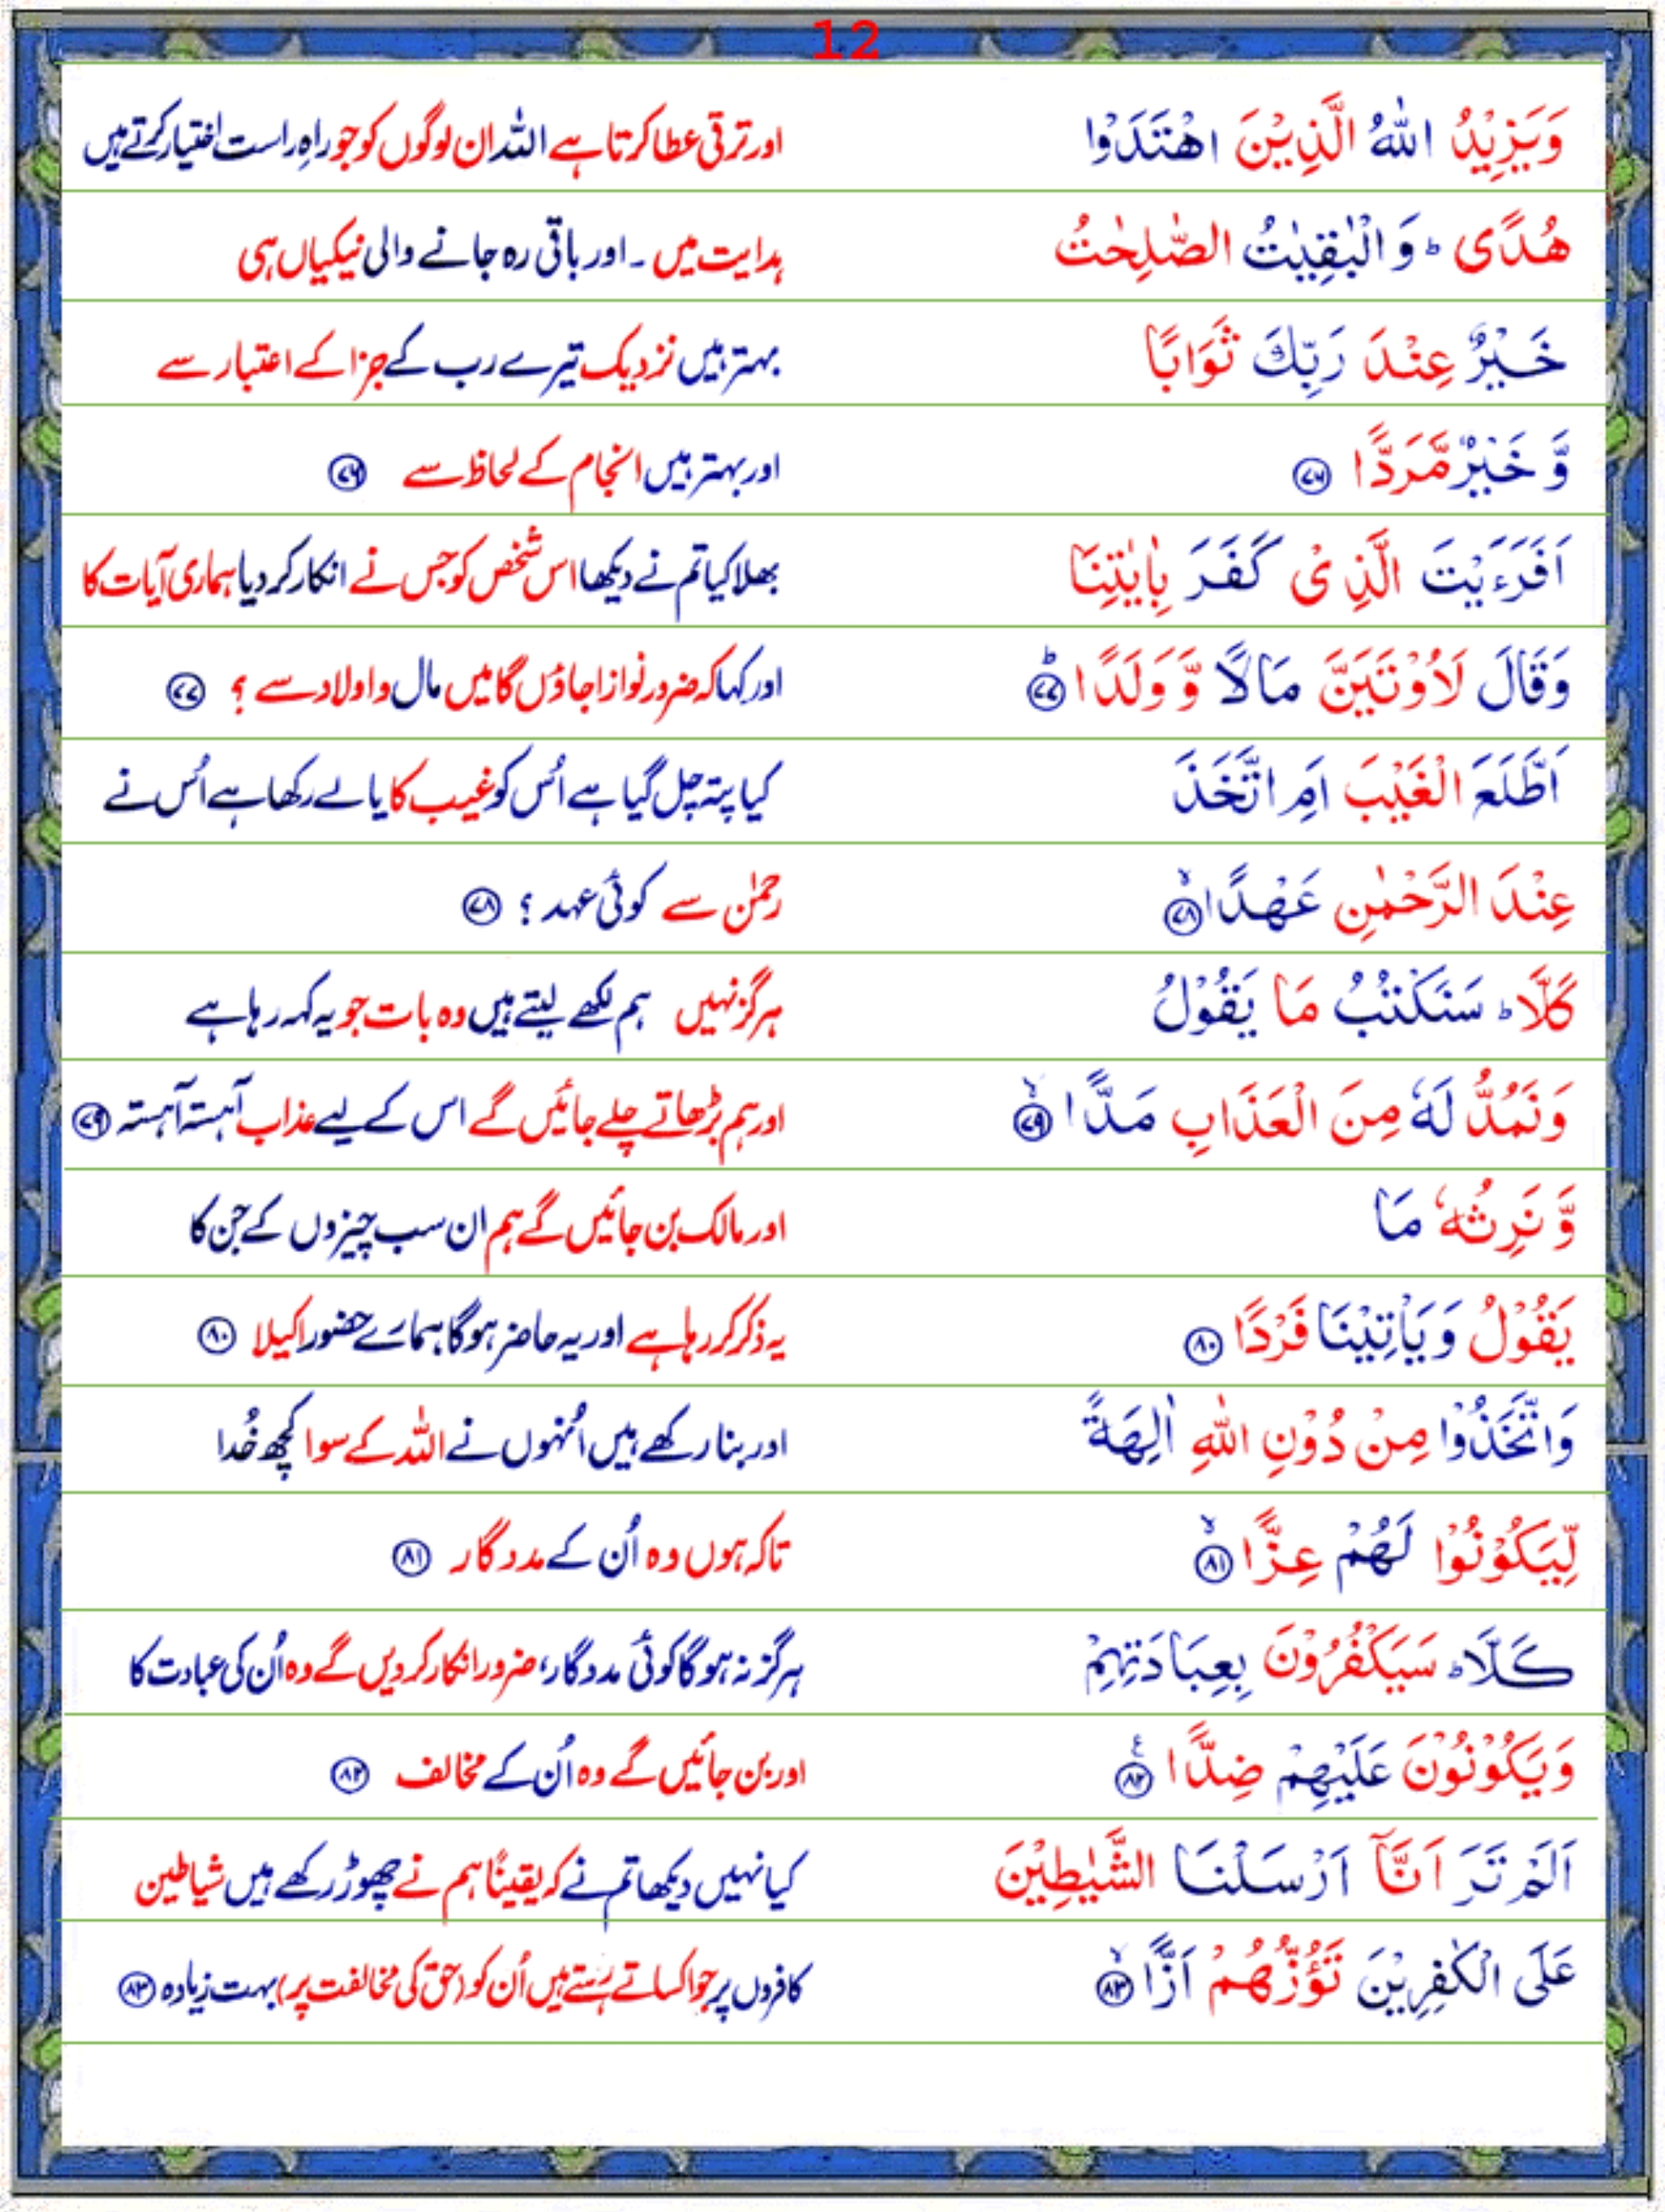 12
وَيَزِيْدُ اللّٰهُ الَّذِيْنَ اهْتَدَوْا اور ترقی عطا کرتا ہے اللہ ان لوگوں کو جو راہِ راست اختیار کرتے ہیں
هُدًى ؕ وَ الْبٰقِيٰتُ الصّٰلِحٰتُ ہدایت میں ۔ اور باقی رہ جانے والی نیکیاں ہی
خَيْرٌ عِنْدَ رَبِّكَ ثَوَابًا بہتر ہیں نزدیک تیرے رب کے جزا کے اعتبار سے
وَّ خَيْرٌ مَّرَدًّا ﴿۷۶﴾ اور بہتر ہیں انجام کے لحاظ سے ﴿۷۶﴾
اَفَرَءَيْتَ الَّذِىْ كَفَرَ بِاٰيٰتِنَا بھلا کیا تم نے دیکھا اس شخص کو جس نے انکار کر دیا ہماری آیات کا
وَقَالَ لَاُوْتَيَنَّ مَالًا وَّ وَلَدًا ؕ﴿۷۷﴾ اور کہا کہ ضرور نوازا جاؤں گا میں مال و اولاد سے ؟ ﴿۷۷﴾
اَطَّلَعَ الْغَيْبَ اَمِ اتَّخَذَ کیا پتہ چل گیا ہے اُس کو غیب کا یا لے رکھا ہے اُس نے
عِنْدَ الرَّحْمٰنِ عَهْدًا ۙ﴿۷۸﴾ رحمٰن سے کوئی عہد ؟ ﴿۷۸﴾
كَلَّا ؕ سَنَكْتُبُ مَا يَقُوْلُ ہرگز نہیں ہم لکھے لیتے ہیں وہ بات جو یہ کہہ رہا ہے
وَنَمُدُّ لَهٗ مِنَ الْعَذَابِ مَدًّا ۙ﴿۷۹﴾ اور ہم بڑھاتے چلے جائیں گے اس کے لیے عذاب آہستہ آہستہ ﴿۷۹﴾
وَّ نَرِثُهٗ مَا اور مالک بن جائیں گے ہم ان سب چیزوں کے جن کا
يَقُوْلُ وَيَاْتِيْنَا فَرْدًا ﴿۸۰﴾ یہ ذکر کر رہا ہے اور یہ حاضر ہوگا ہمارے حضور اکیلا ﴿۸۰﴾
وَاتَّخَذُوْا مِنْ دُوْنِ اللّٰهِ اٰلِهَةً اور بنا رکھے ہیں اُنہوں نے اللہ کے سوا کچھ خُدا
لِّيَكُوْنُوْا لَهُمْ عِزًّا ۙ﴿۸۱﴾ تاکہ ہوں وہ اُن کے مددگار ﴿۸۱﴾
كَلَّا ؕ سَيَكْفُرُوْنَ بِعِبَادَتِهِمْ ہرگز نہ ہوگا کوئی مددگار، ضرور انکار کر دیں گے وہ اُن کی عبادت کا
وَيَكُوْنُوْنَ عَلَيْهِمْ ضِدًّا ﴿۸۲﴾ع اور بن جائیں گے وہ اُن کے مخالف ﴿۸۲﴾
اَلَمْ تَرَ اَنَّاۤ اَرْسَلْنَا الشَّيٰطِيْنَ کیا نہیں دیکھا تم نے کہ یقینًا ہم نے چھوڑ رکھے ہیں شیاطین
عَلَى الْكٰفِرِيْنَ تَؤُزُّهُمْ اَزًّا ۙ﴿۸۳﴾ کافروں پر جو اکساتے رہتے ہیں اُن کو (حق کی مخالفت پر) بہت زیادہ ﴿۸۳﴾